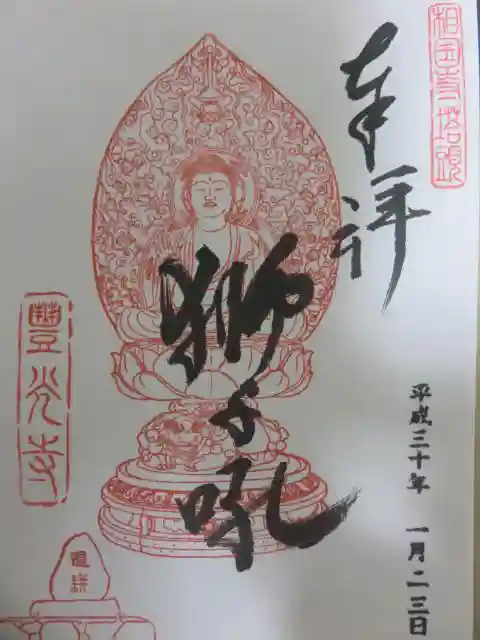 相国寺塔頭
奉拝
獅子吼
平成三十年 一月二三日
豐光寺